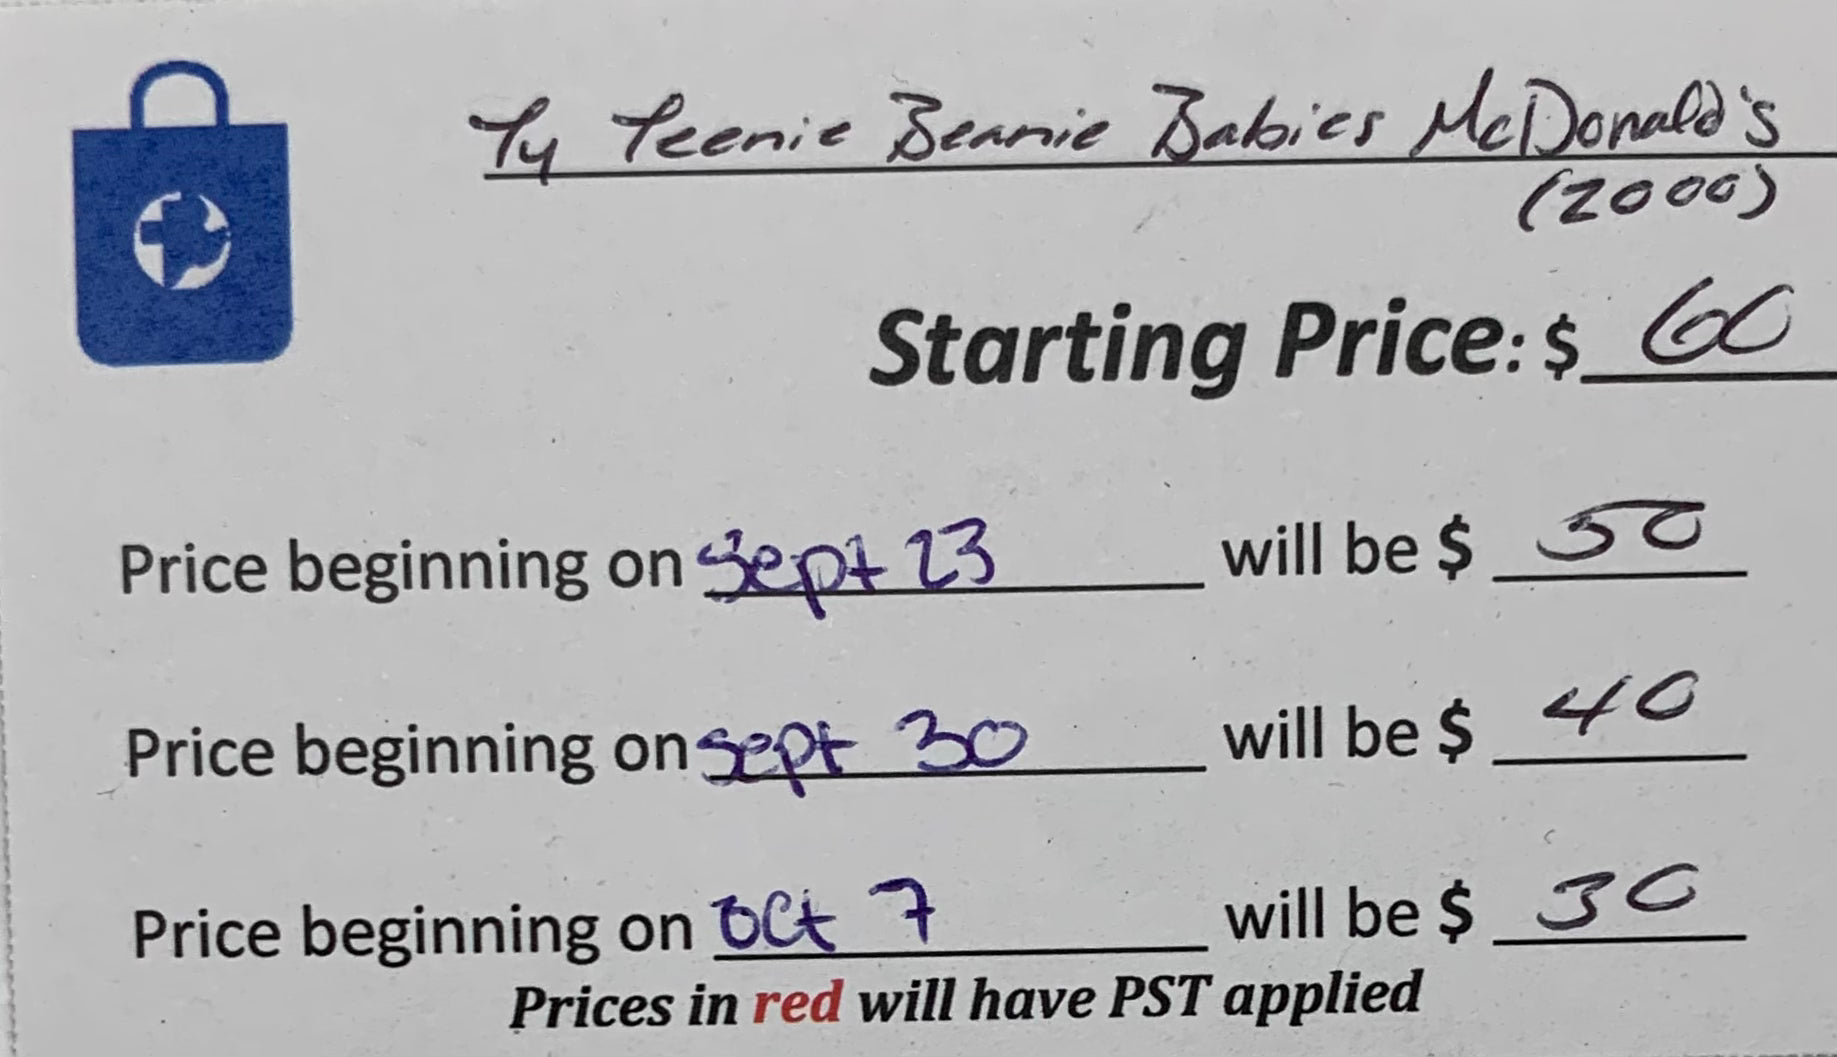 Ty Teenie Beanie Babies McDonald's
(2000)
Starting Price: $ 60
Price beginning on Sept 23 will be $ 50
Price beginning on Sept 30 will be $ 40
Price beginning on Oct 7 will be $ 30
Prices in red will have PST applied